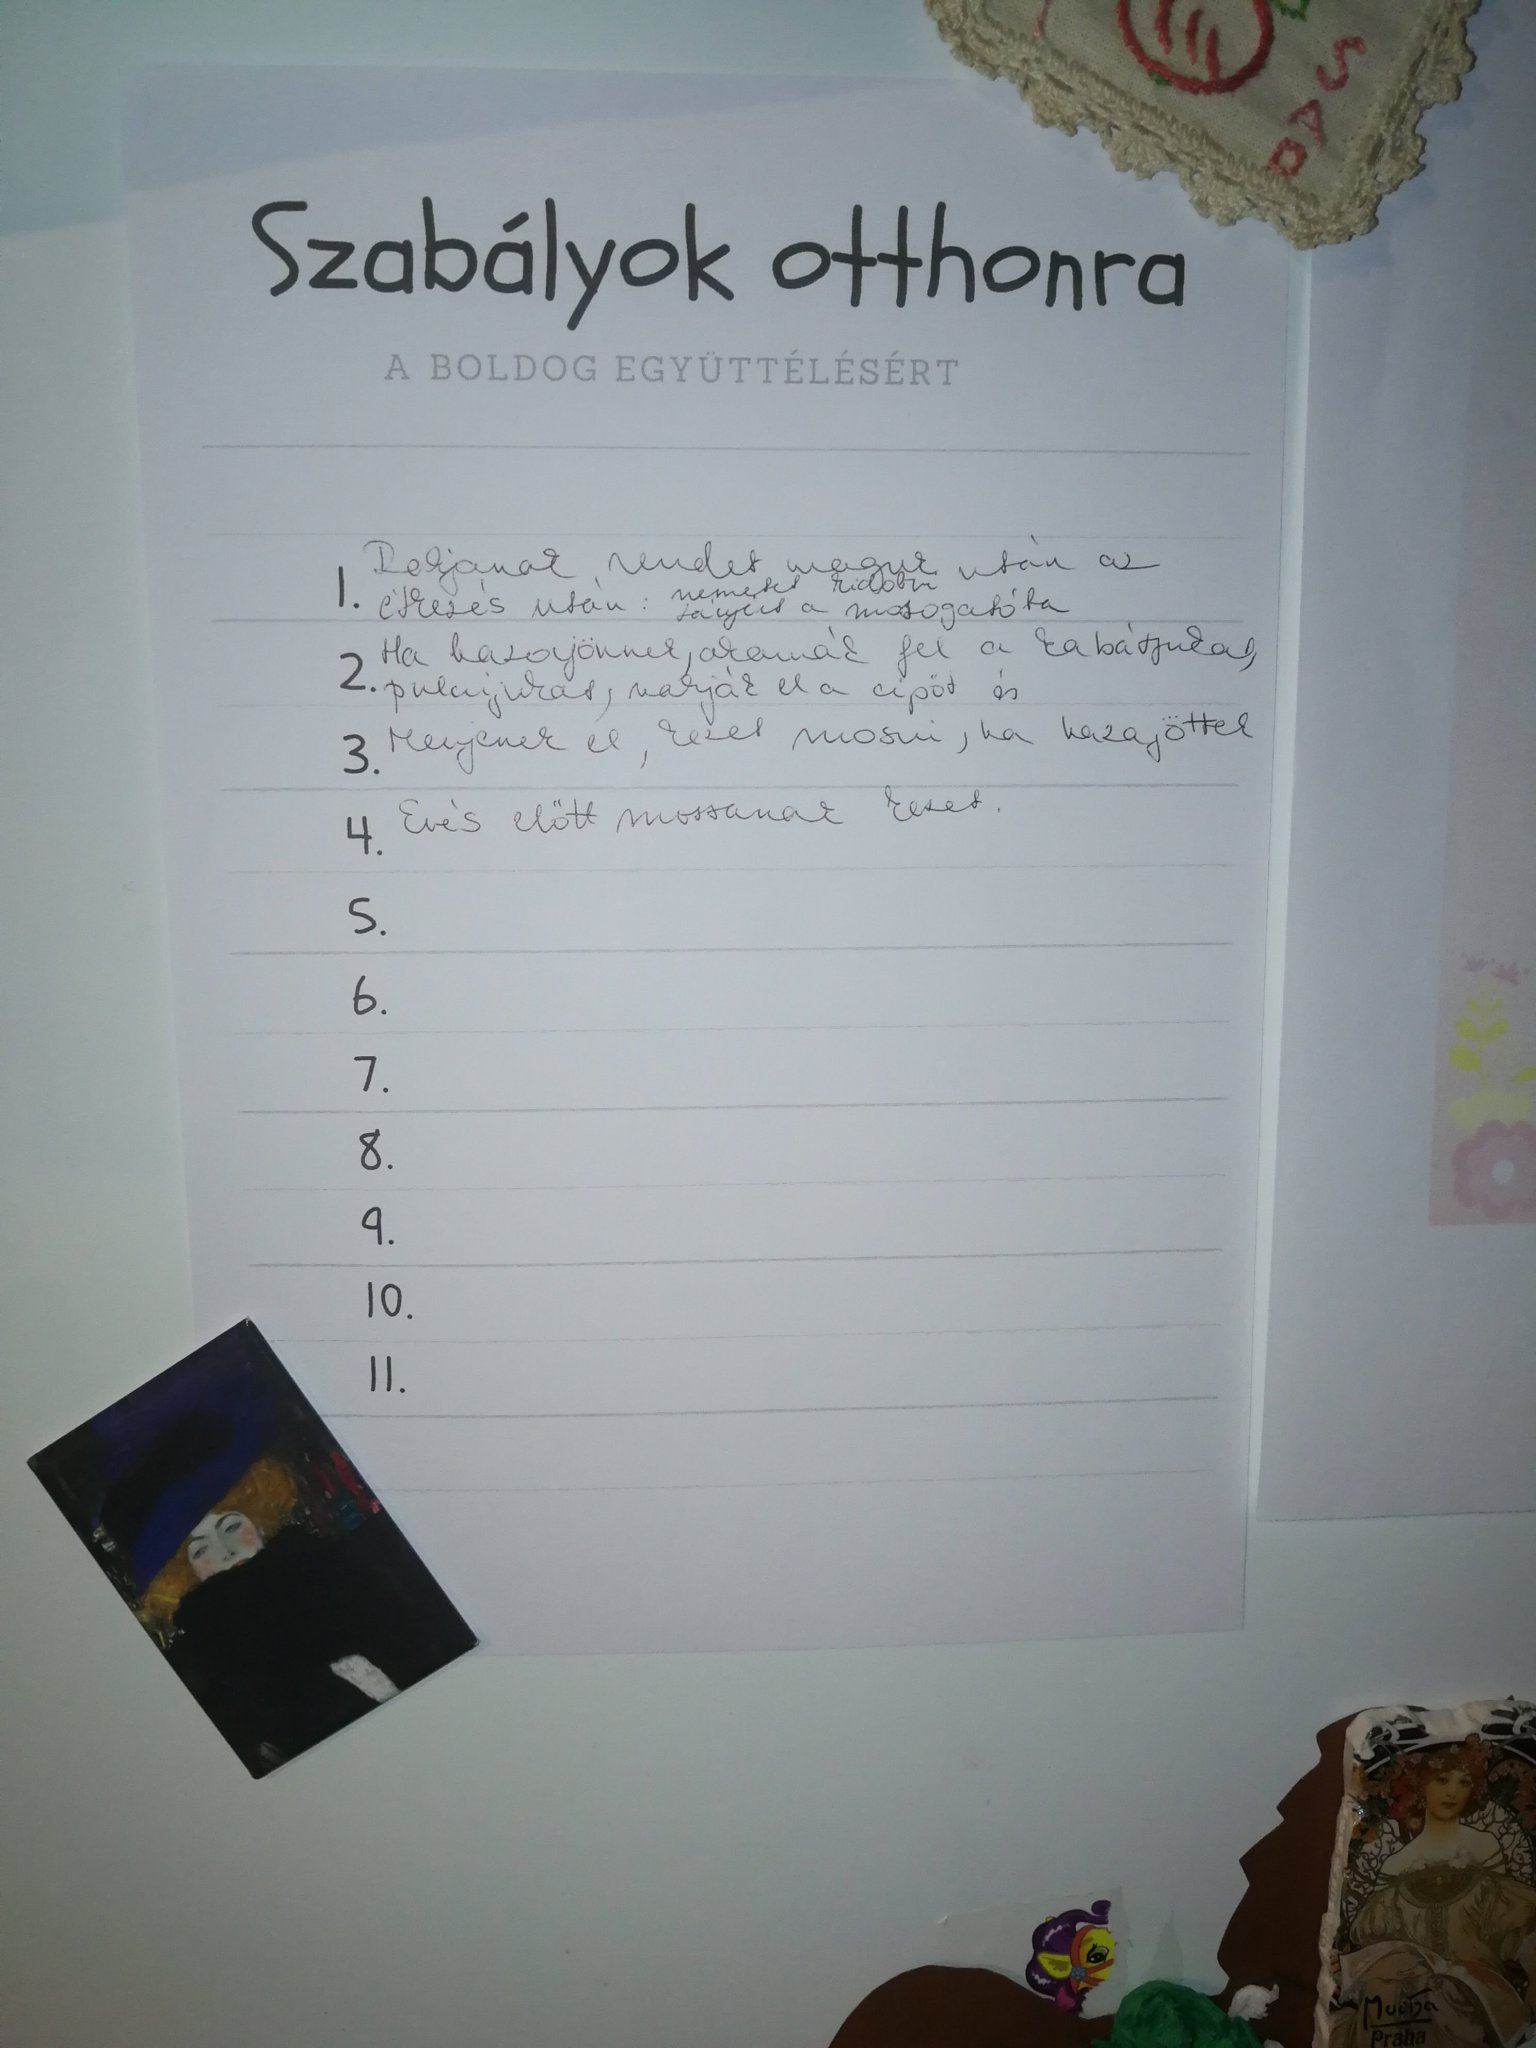 SAD
Szabályok otthonra
A BOLDOG EGYÜTTÉLÉSÉRT
1. Rakjanak rendet maguk után az
étkezés után: szemetet kidobni
tányért a mosogatóba
2. Ha hazajönnek, akasszák fel a kabátjukat,
pulcsijukat, rakják el a cipőt és
3. Menjenek el, kezet mosni, ha hazajöttek
4. Evés előtt mossanak kezet.
5.
6.
7.
8.
9.
10.
11.
Mucha
Praha